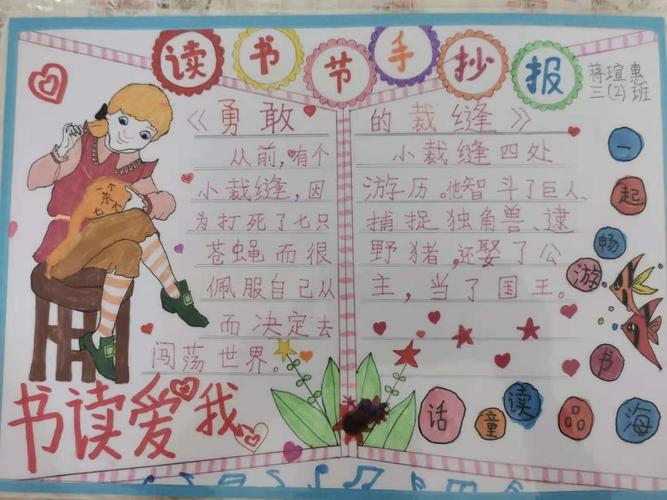 读书节手抄报
蒋瑄惠
三(2)班
《勇敢的裁缝》
从前,有个
小裁缝,因
为打死了七只
苍蝇而很
佩服自己从
而决定去
闯荡世界。
小裁缝四处
游历。他智斗了巨人、
捕捉独角兽、逮
野猪,还娶了公
主,当了国王。
一起畅游书海
话童读品
书读爱我